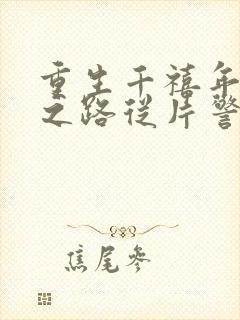 重生千禧年
之路從片警
焦尾參